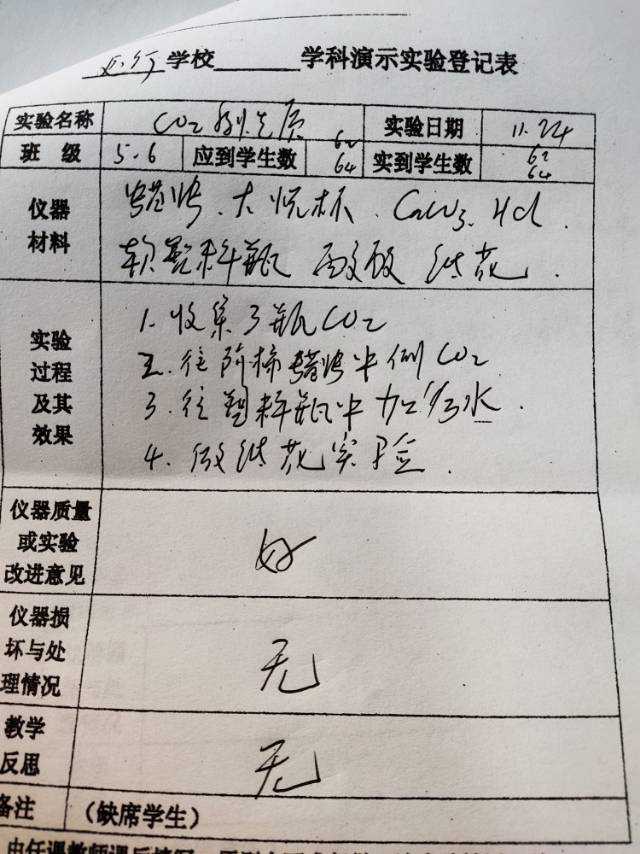 学校______学科演示实验登记表
实验名称 CO2的性质 实验日期 11.24
班 级 5.6 应到学生数 62 64 实到学生数 62 64
仪器材料 蜡烛、大烧杯、CaCO3、HCl.
软塑料瓶 纸花.
实验过程及其效果 1. 收集3瓶CO2
2. 往阶梯蜡烛中倒CO2
3. 往塑料瓶中加1/3水.
4. 做纸花实验.
仪器质量或实验改进意见 好
仪器损坏与处理情况 无
教学反思 无
备注 （缺席学生）